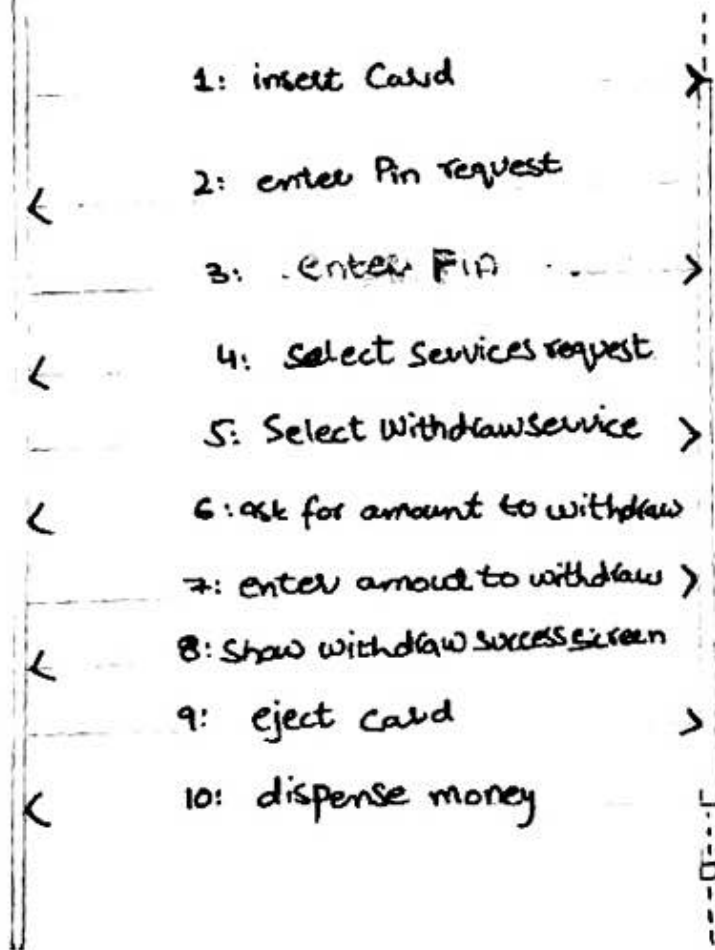 1: insert Card
2: enter Pin request
3: enter Pin
4: Select Services request
5: Select Withdraw Service
6: ask for amount to withdraw
7: enter amout to withdraw
8: Show withdraw success screen
9: eject card
10: dispense money